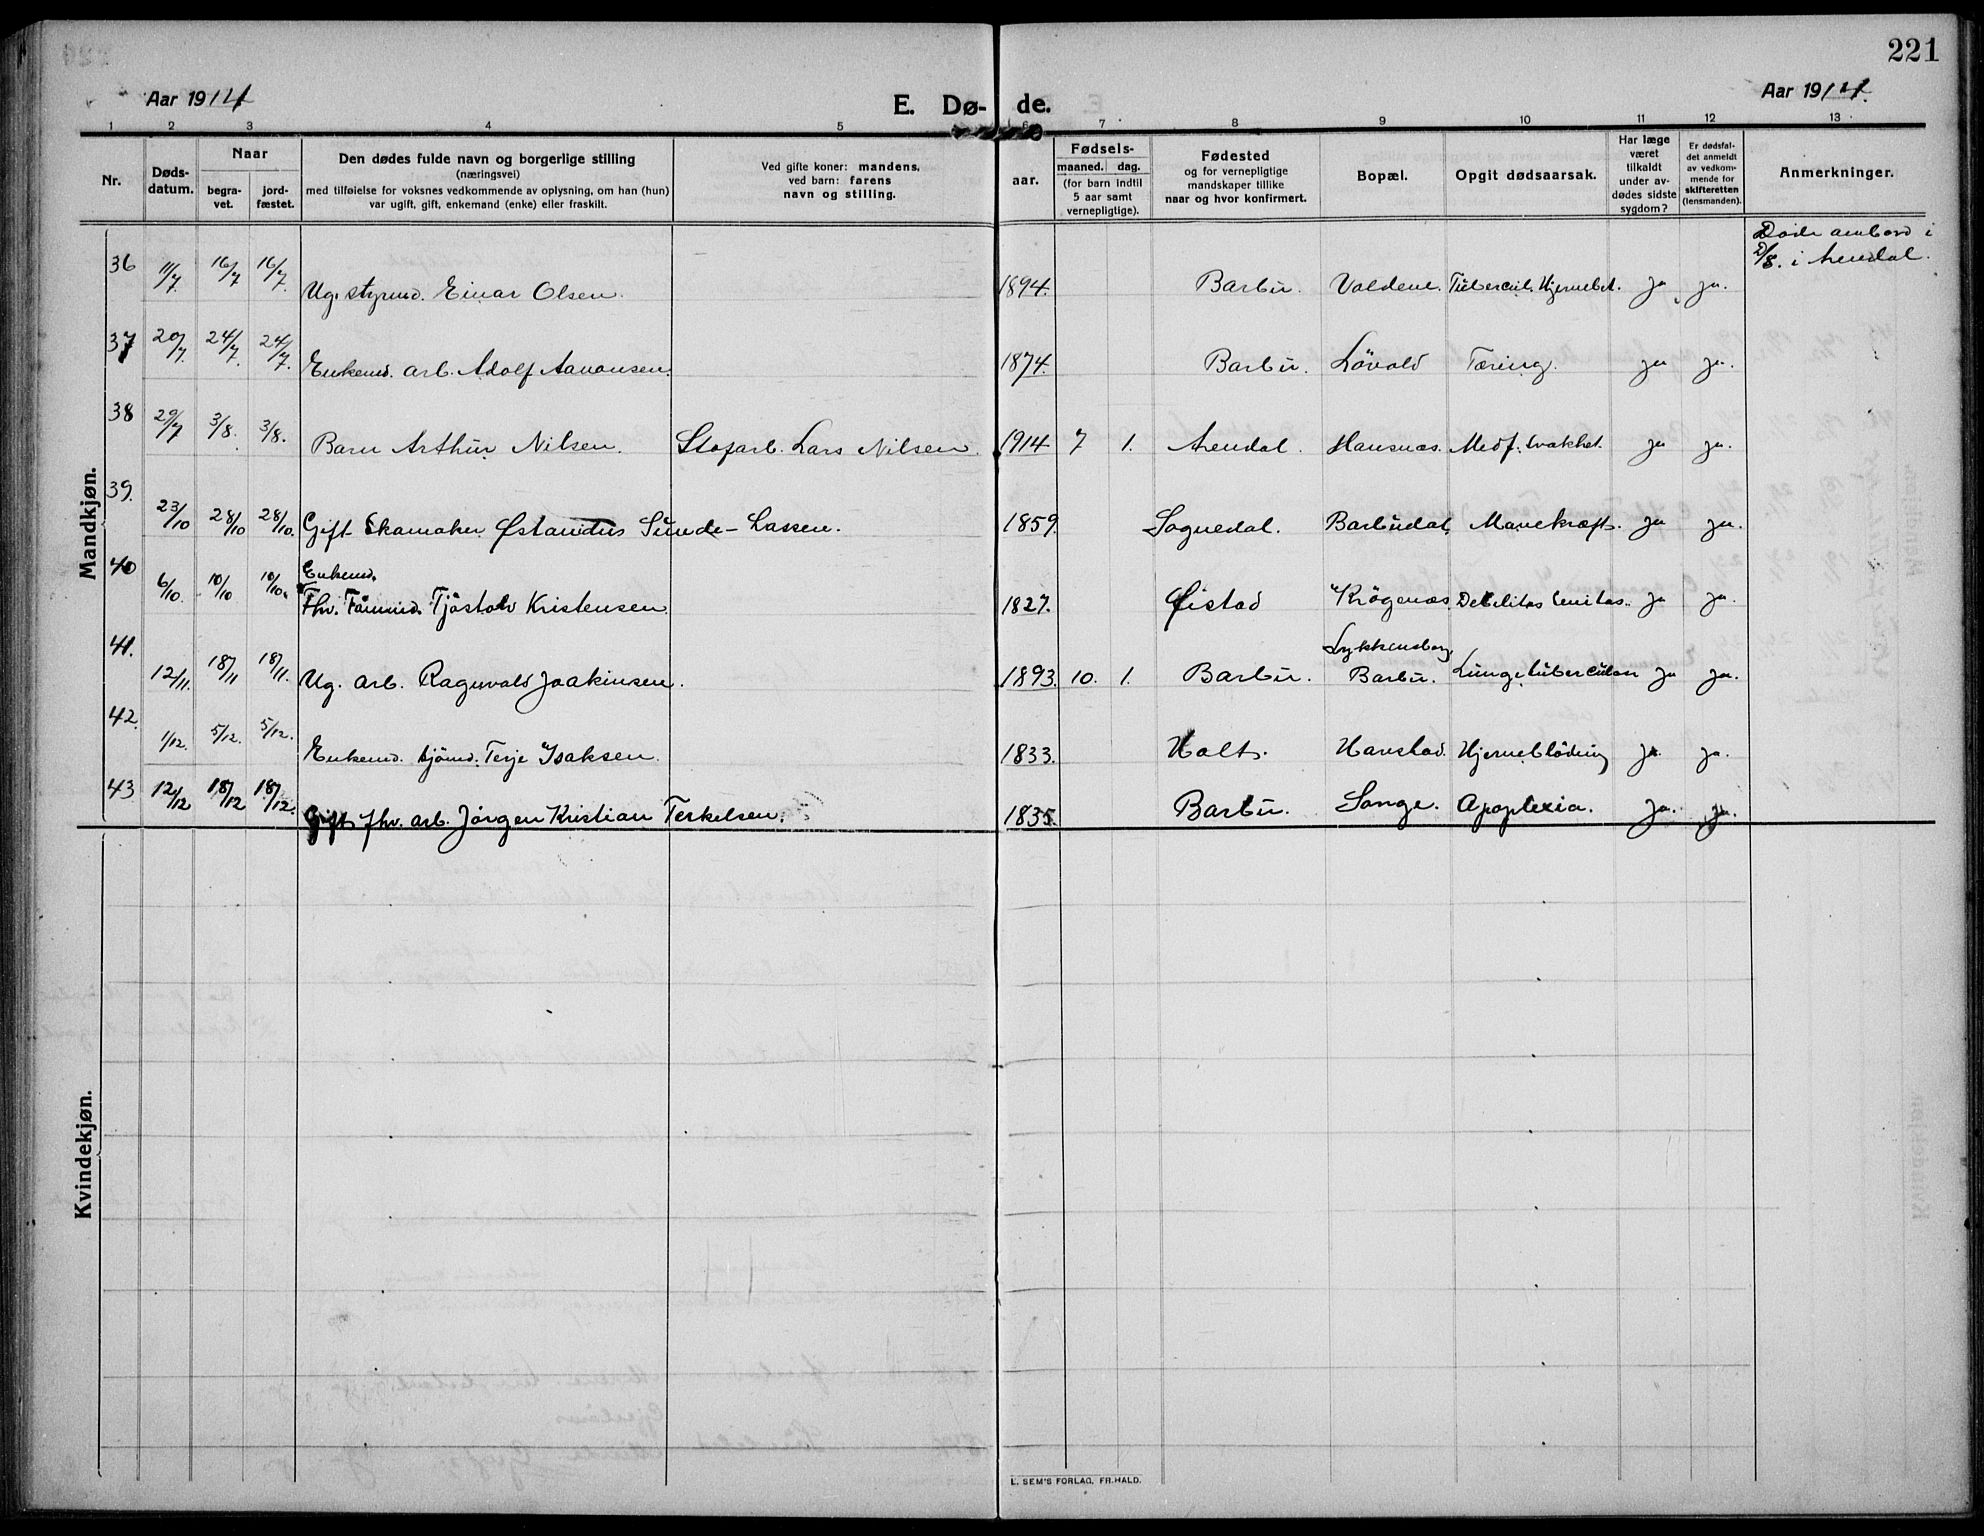 221
Aar 1914 E. Dø- de. Aar 1914.
1 2 3 4 5 6 7 8 9 10 11 12 13
Nr. Døds-datum. Naar begra-vet. jord-fæstet. Den dødes fulde navn og borgerlige stilling (næringsvei) med tilføielse for voksnes vedkommende av oplysning, om han (hun) var ugift, gift, enkemand (enke) eller fraskilt. Ved gifte koner: mandens, ved barn: farens navn og stilling. Fødsels- aar. maaned. dag. (for barn indtil 5 aar samt vernepligtige). Fødested og for vernepligtige mandskaper tillike naar og hvor konfirmert. Bopæl. Opgit dødsaarsak. Har læge været tilkaldt under av-dødes sidste sygdom? Er dødsfal-det anmeldt av vedkom-mende for skifteretten (lensmanden). Anmerkninger.
Mandkjøn.
36 11/7 16/7 16/7. Ug. styrmd. Einar Olsen. 1894. Barbu. Valdene. Tubercul. Hjernebet. ja ja. Døde ombord i
i Arendal.
37 20/7. 24/7. 24/7. Enkemd. arb. Adolf Aanonsen. 1874. Barbu. Løvold Tæring. ja ja.
38 29/7 3/8. 3/8. Barn Arthur Nilsen. Stofarb. Lars Nilsen. 1914 7 1. Arendal. Hansnæs. Medf. svakhet. ja ja.
39. 23/10 28/10 28/10. Gift Skomaker Sunde-Lassen. 1859. Sognedal. Barbudal, Mavekræft. ja ja.
40 6/10. 10/10 10/10. Enkemd.
Fhv. Tjøstolv Kristensen 1827. Øistad Krøgenæs Debilitas senitas. ja ja.
41. 12/11. 18/11 18/11. Ug. arb. Ragnvald Joakimsen. 1893. 10. 1. Barbu. Lykkensborg,
Barbu. Lungetuberculose ja ja.
42. 1/12. 5/12. 5/12. Enkemd. sjømd. Terje Isaksen. 1833. Holt. Havstad. Hjerneblødning ja. ja.
43 12/12 18/12 18/12. Gift fhv. arb. Jørgen Kristian Terkelsen. 1835. Barbu. Songe. Apoplexia. ja. ja.
Kvindekjøn.
L. SEM'S FORLAG, FR.HALD.